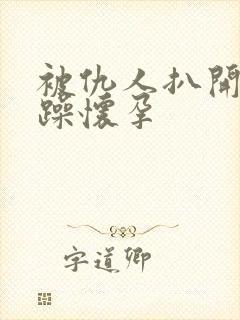 被仇人扒開
躁懷孕
字道卿